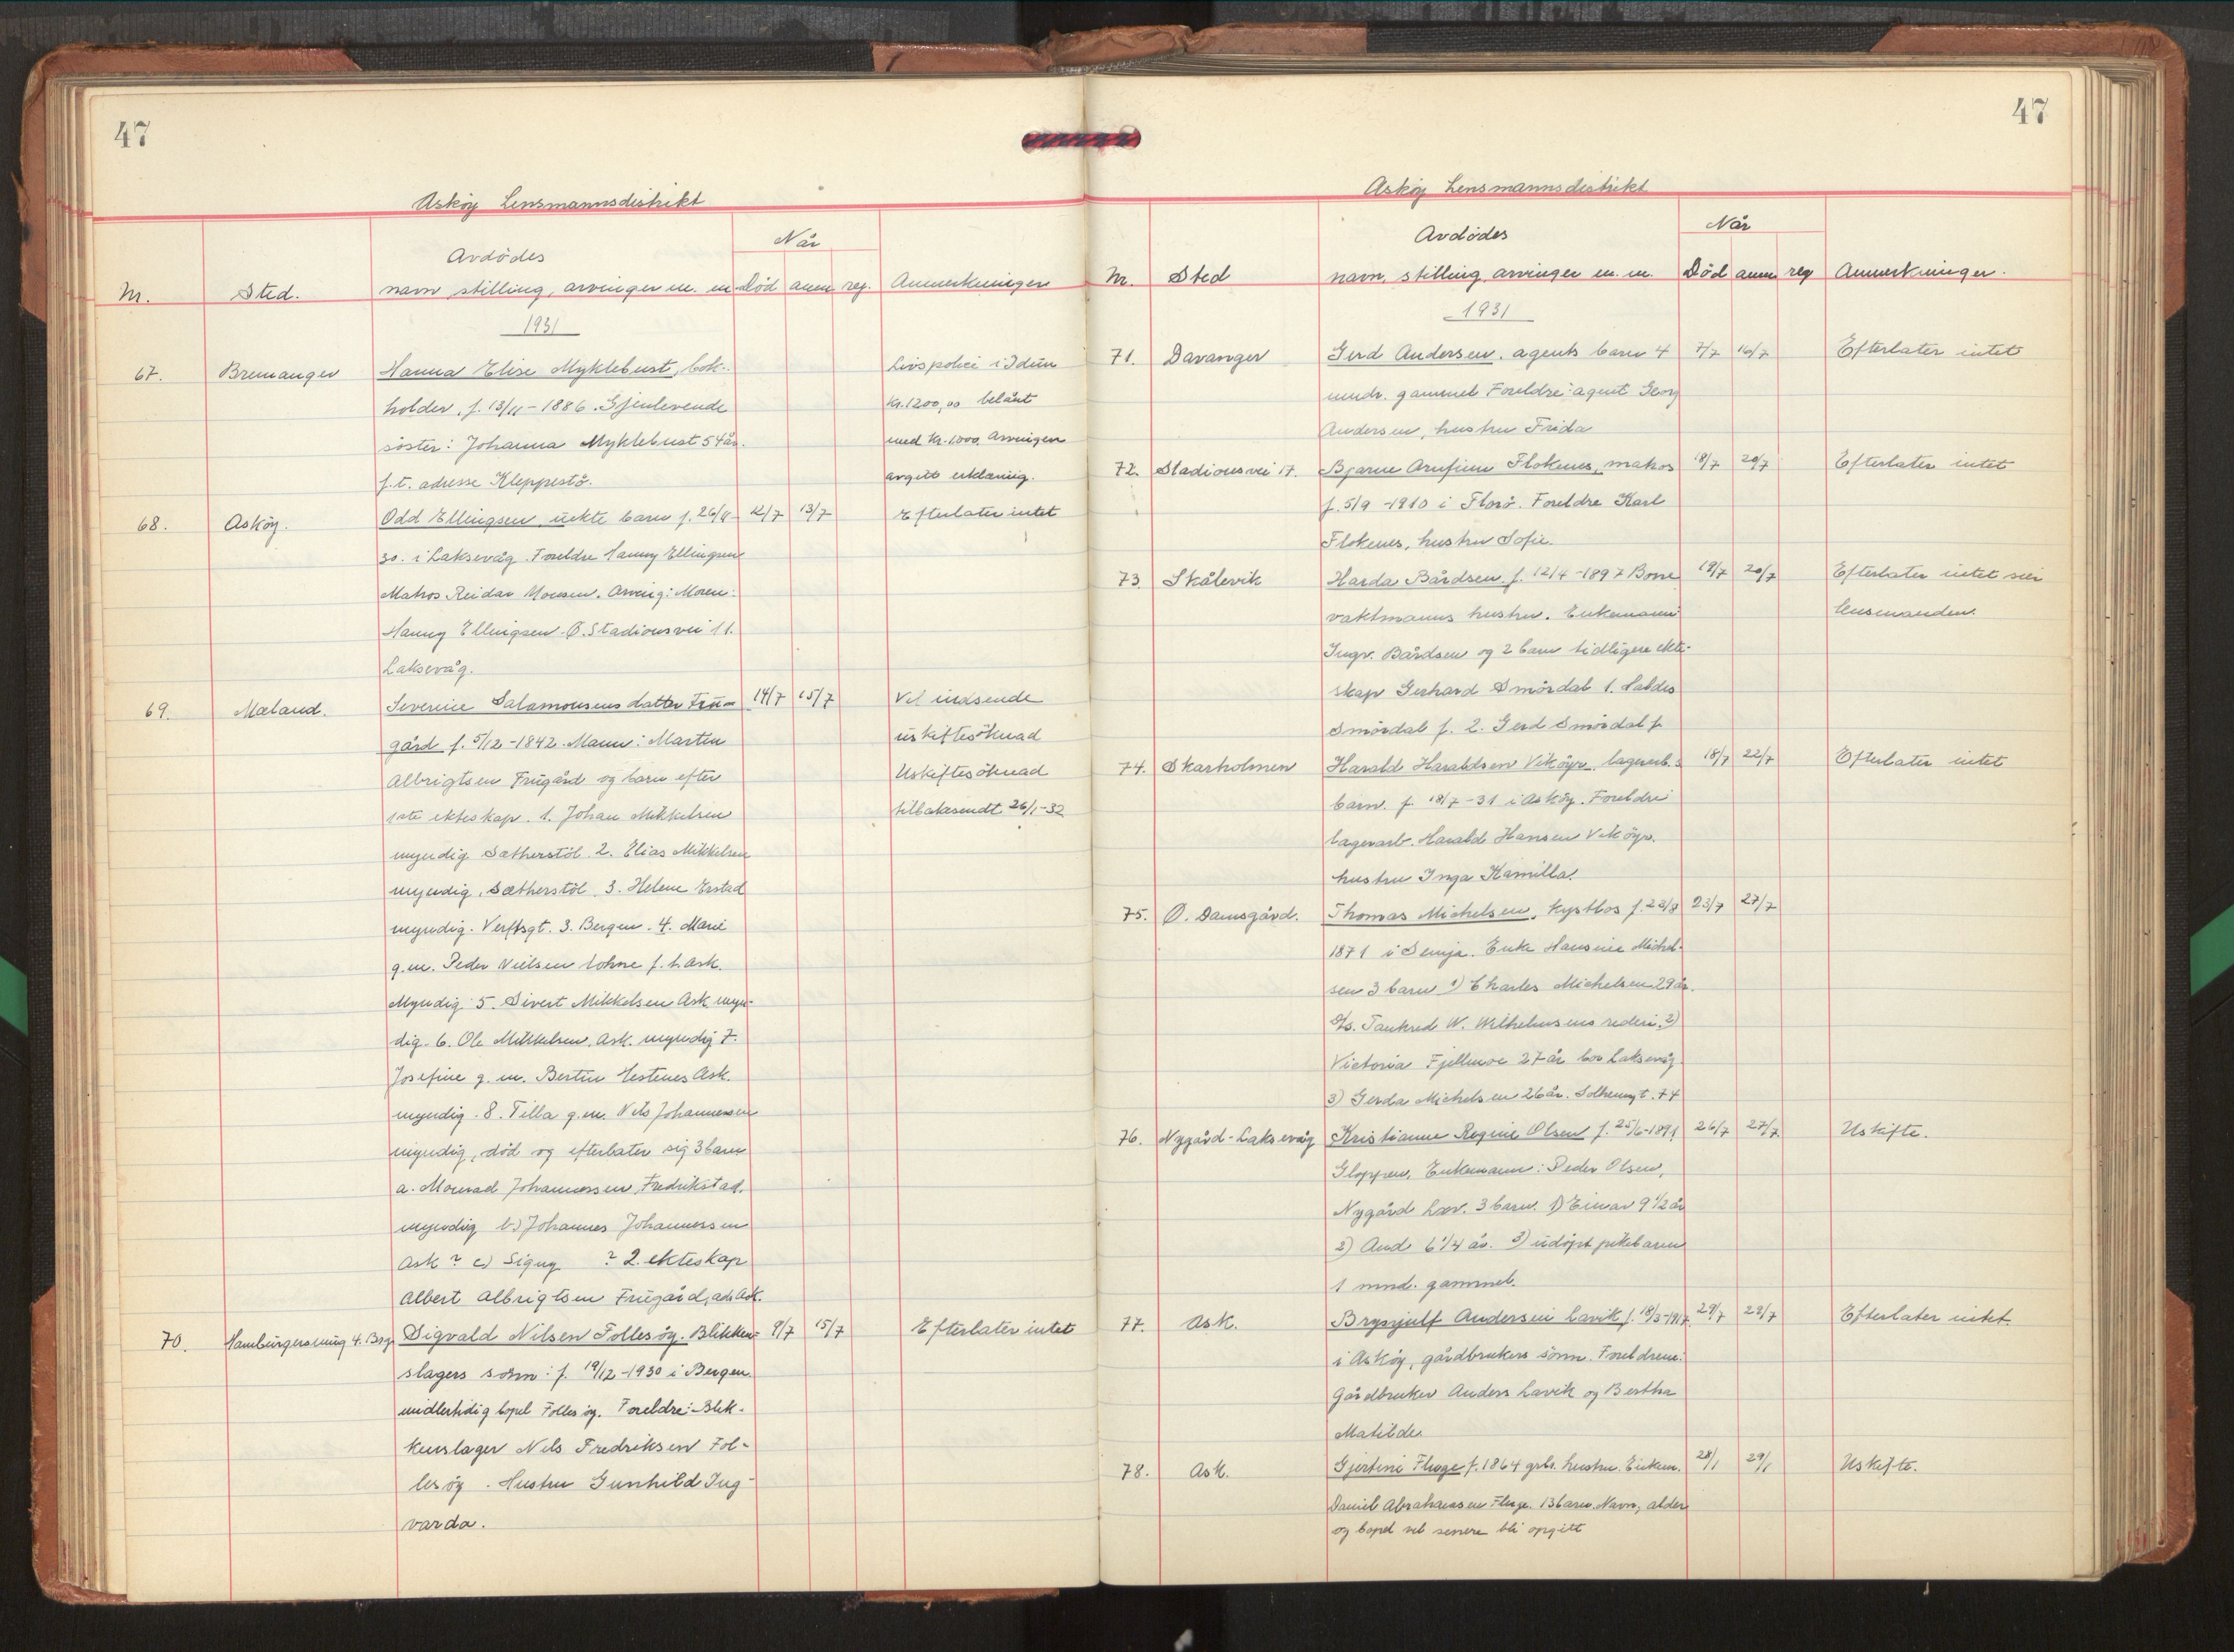 47
Asköy Lensmannsdistrikt
Avdödes
Når
Nr. Sted. navn, stilling, arvinger m. m Död anm reg. Anmerkninger
1931
67. Bremanger Hanna Elise Myklebust, bok- Livspolice i Idun
holder, f. 13/11-1886. Gjenlevende Kr. 1200,00 belånt
söster: Johanna Myklebust 54 år. med Kr. 1000. Arvingen
f.t. adresse Kleppestö. avgitt erklæring.
68. Asköy. Odd Ellingsen uekte barn f. 26/4- 12/7 13/7 Efterlater intet
30. i Laksevåg. Foreldre Hanny Ellingsen
Matros Reidar Monsen. Arving: Moren:
Hanny Ellingsen Ø. Stadionsvei 11.
Laksevåg.
69. Mæland. Severine Salamonsens datter Fru- 14/7 15/7 Vil indsende
gård f. 5/12-1842. Mann: Martin uskiftesöknad
Albrigtsen Frugård og barn efter Uskiftesöknad
1ste ekteskap. 1. Johan Mikkelsen tilbakesendt 26/1-32
myndig Sætherstöl 2. Elias Mikkelsen
myndig, Sætherstöl 3. Helene Erstad
myndig. Verftsgt. 3. Bergen. 4. Marie
g.m. Peder Nielsen Lohne f. t. Ask.
Myndig 5. Sivert Mikkelsen Ask myn-
dig. 6. Ole Mikkelsen, Ask. myndig 7.
Josefine g. m. Bertin Hestenes Ask.
myndig. 8. Tilla g.m. Nils Johannessen
myndig, död og efterlater sig 3 barn
a. Monrad Johannessen, Fredrikstad.
myndig b.) Johannes Johannessen
Ask ? c) Signy ? 2. ekteskap
Albert Albrigtsen Frugård, ads Ask.
70. Hamburgersmug 4. Brg. Sigvald Nilsen Follesöy. Blikken- 9/7 15/7 Efterlater intet
slagers sönn: f. 19/12-1930 i Bergen.
midlertidig bopel Follesöy. Foreldre: Blik-
kenslager Nils Fredriksen Fol-
lesöy. Hustru Gunhild Ing-
varda.
47
Asköy Lensmannsdistrikt
Avdödes
Når
Nr. Sted navn, stilling arvinger m. m. Död anm reg Anmerkninger.
1931
71. Davanger Gerd Andersen, agents barn 4 7/7 16/7 Efterlater intet
mndr. gammel Foreldre: agent Georg
Andersen, hustru Frida
72. Stadionsvei 17. Bjarne Arnfinn Flokenes, matros 18/7 20/7 Efterlater intet
f. 5/9-1910 i Florö. Foreldre Karl
Flokenes, hustru Sofie.
73 Skålevik Harda Bårdsen. f. 12/4-1897 Bone 19/7 20/7 Efterlater intet sier
vaktmanns hustru. Enkemann lensmanden.
Ingv. Bårdsen og 2 barn tidligere ekte-
skap Gerhard Smördal 1. Haldis
Smördal f. 2. Gerd Smördal f.
74. Skarholmen Harald Haraldsen Viköyr. lagerarb.s 18/7 22/7 Efterlater intet
barn. f. 18/7-31 i Asköy. Foreldre
lagerarb. Harald Hansen Viköyr.
hustru Inga Kamilla.
75. Ø. Damsgård. Thomas Michelsen, kystlos f. 22/8 23/7 27/7
1871 i Senja. Enke Hansine Michel-
sen 3 barn 1) Charles Michelsen 29 år.
S/s. Tankred W. Wilhelmsens rederi. 2)
Victoria Fjellmoe 27 år bor Laksevåg.
3) Gerda Michelsen 26 år. Solheimsgt. 74
76. Nygård-Laksevåg Kristianne Regine Olsen f. 25/6-1891 26/7 27/7 Uskifte.
Gloppen. Enkemann: Peder Olsen,
Nygård Lxv. 3 barn. 1) Einar 9 1/2 år
2) Aud 6 1/4 år. 3) udöpt pikebarn
1 mnd. gammel.
77. Ask. Brynjulf Andersen Lavik f. 18/3-1917. 29/7 29/7 Efterlater intet.
i Asköy, gårdbrukers sönn. Foreldrene:
Gårdbruker Anders Lavik og Bertha
Matilde.
78. Ask. Gjertine Fluge f. 1864 grbr. hustru. Enkem. 28/1 29/1 Uskifte.
Daniel Abrahamsen Fluge. 13 barn. Navn, alder
og bopel vil senere bli opgitt